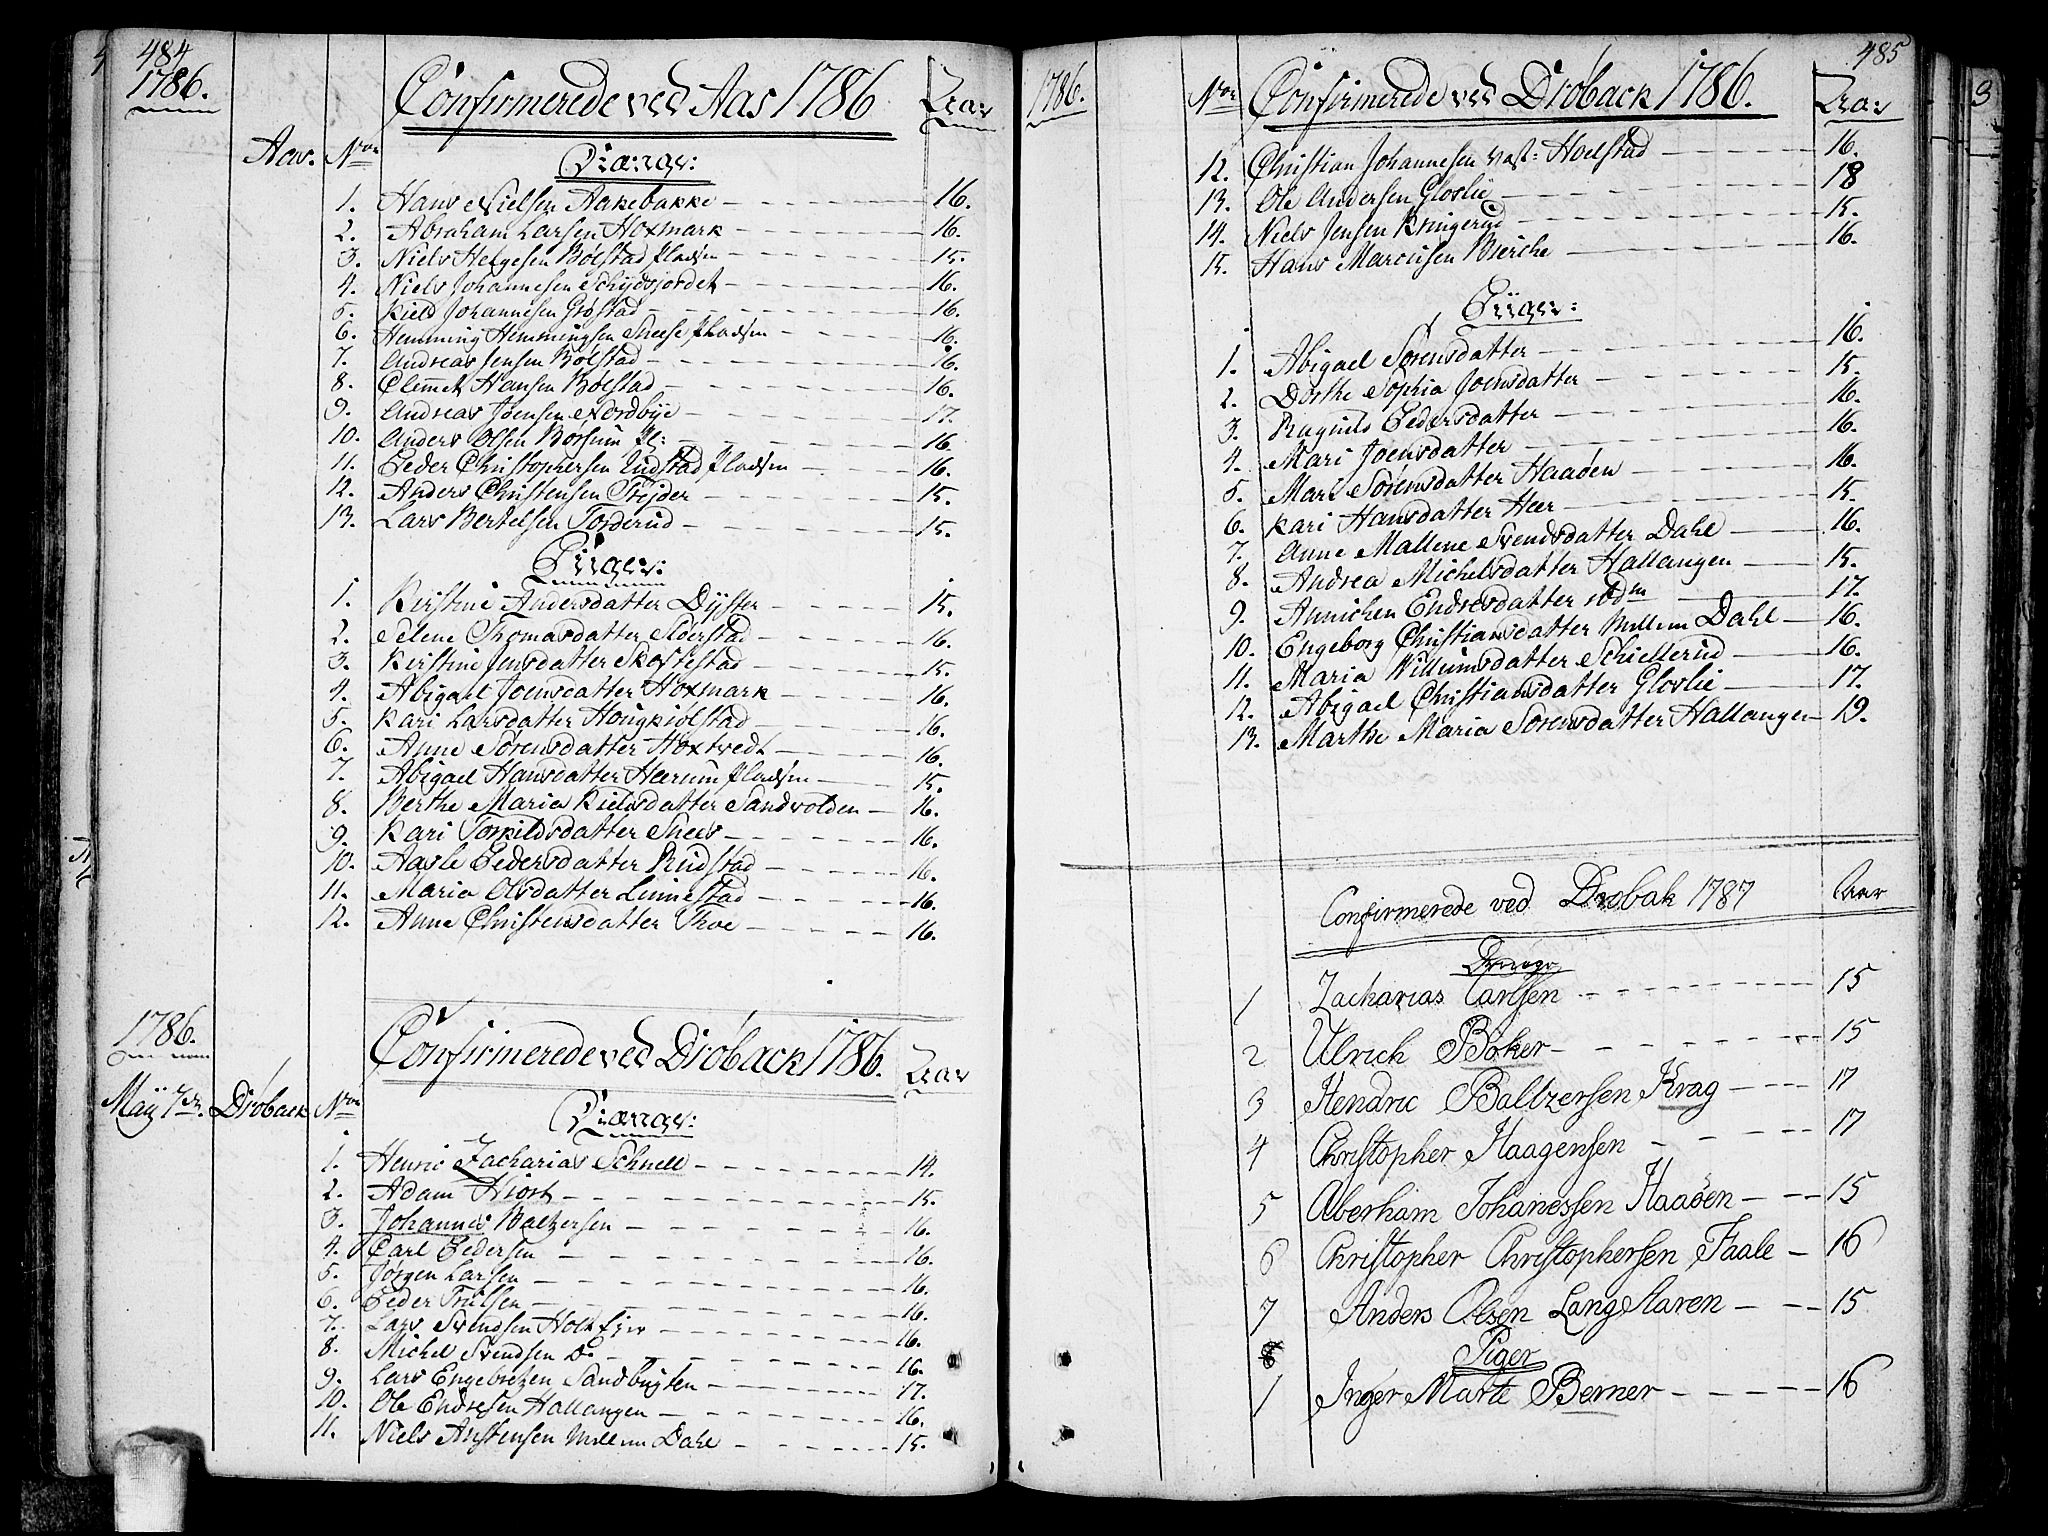 484
1786.
Confirmerede ved Aas 1786
Aar
Aas. Nor
Drænge:
1. Hans Nielsen Aakebakke 16.
2. Abraham Larsen Hoxmark 16.
3. Niels Helgesen Bølstad Pladsen 15.
4. Niels Johannesen Schydsjordet 16.
5. Kield Johannesen Grøstad 16.
6. Hemming Hemmingsen Sneese Pladsen 16.
7. Andreas Jensen Bølstad 16.
8. Clemmet Hansen Bølstad 16.
9. Andreas Joensen Nordbye 17.
10. Anders Olsen Børsum Pl: 16
11. Peder Christophersen Rudstad Pladsen 16.
12. Anders Christensen Trejder 15.
13. Lars Bertelsen Torderud 15.
Piiger:
1. Kirstine Andersdatter Dyster 15.
2. Selene Thomasdatter Nørstad 16.
3. Kirstine Jensdatter Skoftestad 15.
4. Abigael Joensdatter Hoxmark 16.
5. Kari Larsdatter Hougkiølstad 16.
6. Anne Sørensdatter Hoxtvedt 16.
7. Abigael Hansdatter Heerum Pladsen 15.
8. Berthe Maria Kieldsdatter Sandvolden 16.
9. Kari Torkildsdatter Snees 16.
10. Aasle Pedersdatter Rudstad 16.
11. Maria Olsdatter Linnestad 16.
12. Anne Christensdatter Skoe 16.
1786.
Confirmerede ved Drøback 1786.
Aar
May 7de. Drøback Nor
Drænge:
1. Henric Zacharias Schnell 14.
2. Adam Hiort 15.
3. Johannes Baltzersen 16.
4. Carl Pedersen 16.
5. Jørgen Larsen 16.
6. Peder Trulsen 16.
7. Lars Svendsen Holt Ejer 16.
8. Michel Svendsen Do 16.
9. Lars Engebretzen Sandbugten 17.
10. Ole Endresen Hallangen 16.
11. Niels Anstensen Mellem Dahl 15.
485
1786.
Nor Confirmerede ved Drøback 1786.
Aar
12. Christian Johannesen vest: Hoelstad 16.
13. Ole Andersen Gloslie 18
14. Niels Jensen Kringerud 15.
15. Hans Marcusen Bierche 16.
Piiger:
1. Abigael Sørensdatter 16.
2. Dorthe Sophia Joensdatter 15.
3. Ragnild Pedersdatter 16.
4. Mari Joensdatter 16.
5. Mari Sørensdatter Haaøen 16.
6. Kari Hansdatter Heer 15.
7. Anne Mallene Svendsdatter Dahl 16.
8. Andrea Michelsdatter Hallangen 15.
9. Annichen Endresdatter ibdm 17.
10. Engeborg Christiansdatter Mellem Dahl 16.
11. Maria Willumsdatter Schiellerud 16.
12. Abigael Christiansdatter Gloslie 17.
13. Marthe Maria Sørensdatter Hallangen 19.
Confirmerede ved Drøbak 1787
Aar
Drænge
1 Zacharias Carlsen 15
2 Ulrich Bøker 15
3 Hendric Baltzersen Krag 17
4 Christopher Haagensen 17
5 Aberham Johanessen Haaøen 15
6 Christopher Christophersen Faale 16
7 Anders Olsen Lang Aaren 15
Piger
1 Inger Marte Berner 16
3